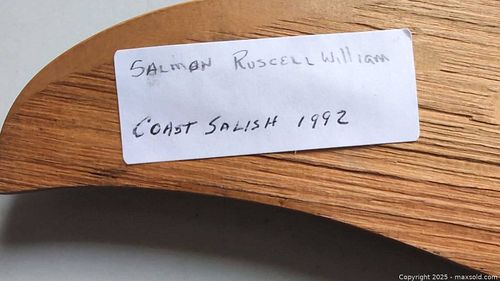 SALMON RUSCELL William
COAST SALISH 1992
Copyright 2025 - maxsold.com